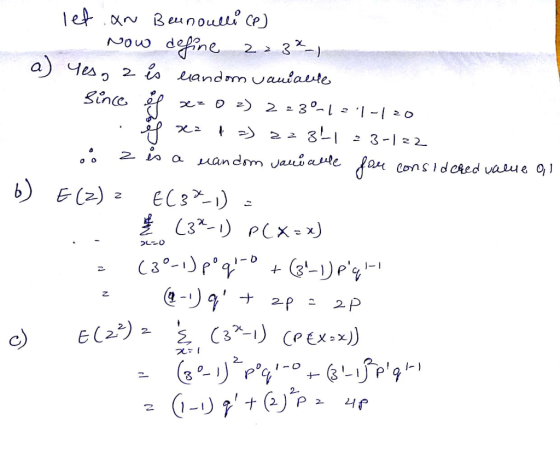 let X ~ Bernoulli (P)
Now define z = 3^x - 1
a) Yes, z is random variable
Since if x = 0 => z = 3^0 - 1 = 1 - 1 = 0
if x = 1 => z = 3^1 - 1 = 3 - 1 = 2
∴ z is a random variable for considered value 0,1
b) E(z) = E(3^x - 1) =
Σ_{x=0}^{1} (3^x - 1) P(X = x)
= (3^0 - 1) p^0 q^{1-0} + (3^1 - 1) p^1 q^{1-1}
= (1 - 1) q^1 + 2p = 2p
c) E(z^2) = Σ_{x=1}^{1} (3^x - 1) (P(X = x))
= (3^0 - 1)^2 p^0 q^{1-0} + (3^1 - 1)^2 p^1 q^{1-1}
= (1 - 1) q^1 + (2)^2 p = 4p